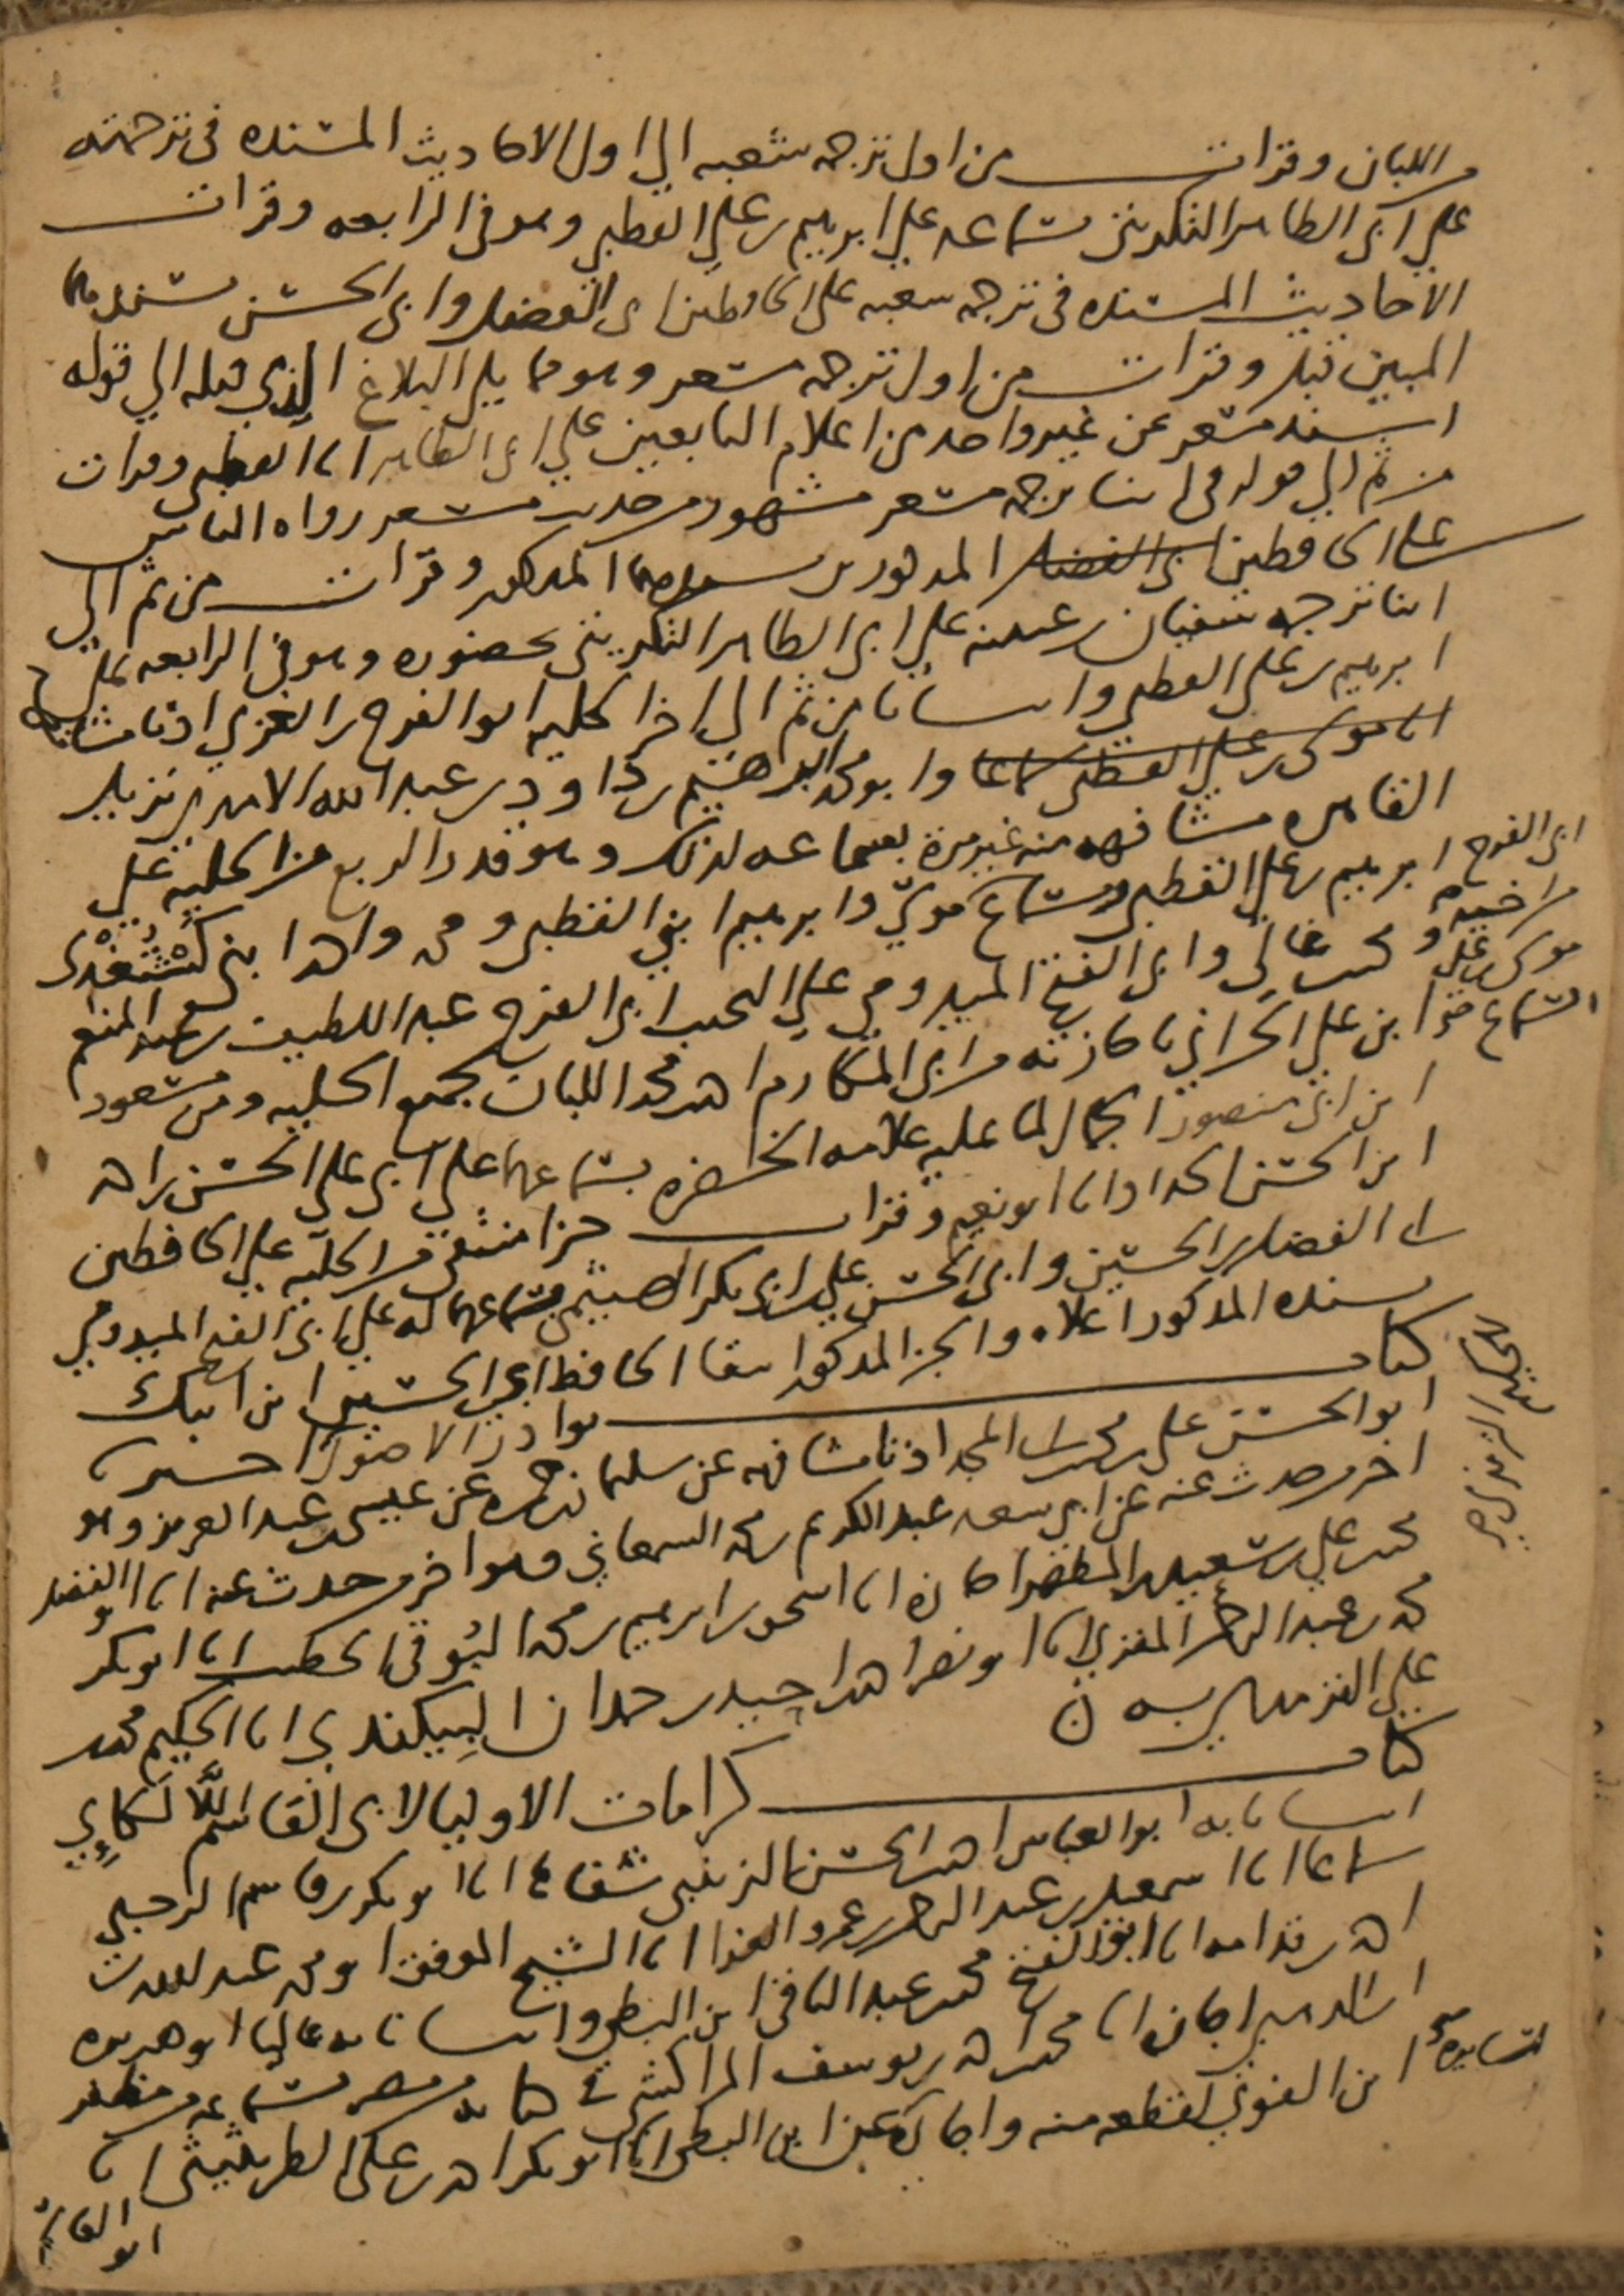 اللبان وقرات من اول ترجمه شعبه الي اول الاحاديث المسنده في ترجمته
علي ابي الطاهر التكريتي سماعه علي ابرهيم بن علي القطبي وهو في الرابعه وقرات
الاحاديث المسنده في ترجمه شعبه علي الحافظين ابي الفضل وابي الحسن بسندهما
المبين قبل وقرات من اول ترجمه مسعر وهو مما يلي البلاغ الذي قبله الي قوله
اسند مسعر عن غير واحد من اعلام التابعين علي ابي الطاهر انا القطبي وقرات
من ثم الي قوله في اثنا ترجمه مسعر مشهور من حديث مسعر رواه الناس
علي الحافظين ابي الفضل المذكورين بسندهما المذكور وقرات من ثم الي
اثنا ترجمه سفيان بن عيينه علي ابي الطاهر التكريتي بحضوره وهو في الرابعه علي
ابرهيم بن علي القطبي وانبانا من ثم الي اخر الحليه ابو الفرج بن الغزي اذنا مشافهه
انا موسى بن علي القطبي سماعا وابو محمد ابرهيم بن داود بن عبد الله الامدي نزيل
القاهره مشافهه منه غير مرة بسماعه لذلك وهو قدر الربع من الحليه علي
ابي الفرج ابرهيم بن علي القطبي وبسماع موسى وابرهيم ابني القطبي ومحمد واحمد ابني كُشْتُغْدِي
محمد بن غالي وابي الفتح الميدومي علي النجيب ابي الفرج عبد اللطيف بن عبد المنعم
ابن علي الحراني باجازته من ابي المكارم احمد بن محمد اللبان بجميع الحليه ومن مسعود
ابن ابي منصور الجمال لما عليه علامه الحضره بسماعهما علي ابي علي الحسن بن احمد
ابن الحسن الحداد انا ابو نعيم وقرات جزا منتقى من الحليه علي الحافظين
ابي الفضل بن الحسين وابي الحسن علي بن ابي بكر الهيثمي بسماعهما له علي ابي الفتح الميدومي
بسنده المذكور اعلاه والجز المذكور انتقا الحافظ ابي الحسين ابن ايبك
كتاب نوادر الاصول اخبرنا
ابو الحسن علي بن محمد بن ابي المجد اذنا مشافهه عن سليمان بن حمزه عن عيسى بن عبد العزيز وهو
اخر من حدث عنه عن ابي سعد عبد الكريم بن محمد السمعاني وهو اخر من حدث عنه انا ابو الفضل
محمد بن علي بن سعيد المطهر اجازه انا اسحق بن ابرهيم بن محمد النُوقي الخطيب انا ابو بكر
محمد بن عبد الرحمن المقري انا ابو نصر احمد بن احيد بن حمدان البيكندي انا الحكيم محمد بن
علي الترمذي به ن
كتاب كرامات الاوليا لابي القاسم اللَّالَكائي
انبانا به ابو العباس احمد بن الحسن الزينبي شفاها انا ابو بكر بن قاسم الرحبي
سماعا انا اسمعيل بن عبد الرحمن بن عمرو الفرا انا الشيخ الموفق ابو محمد عبد الله بن
احمد بن قدامه انا ابو الفتح محمد بن عبد الباقي ابن البطي وانبانا به عاليا ابو هريره
ابن الذهبي اجازه انا محمد بن احمد بن يوسف المراكشي في كتابه من مصر بسماعه من مظفر
ابن الفوي لقطعه منه واجازه عن ابن البطي انا ابو بكر احمد بن علي الطريثيثي انا
ابو القاسم
موسى بن علي
السماع